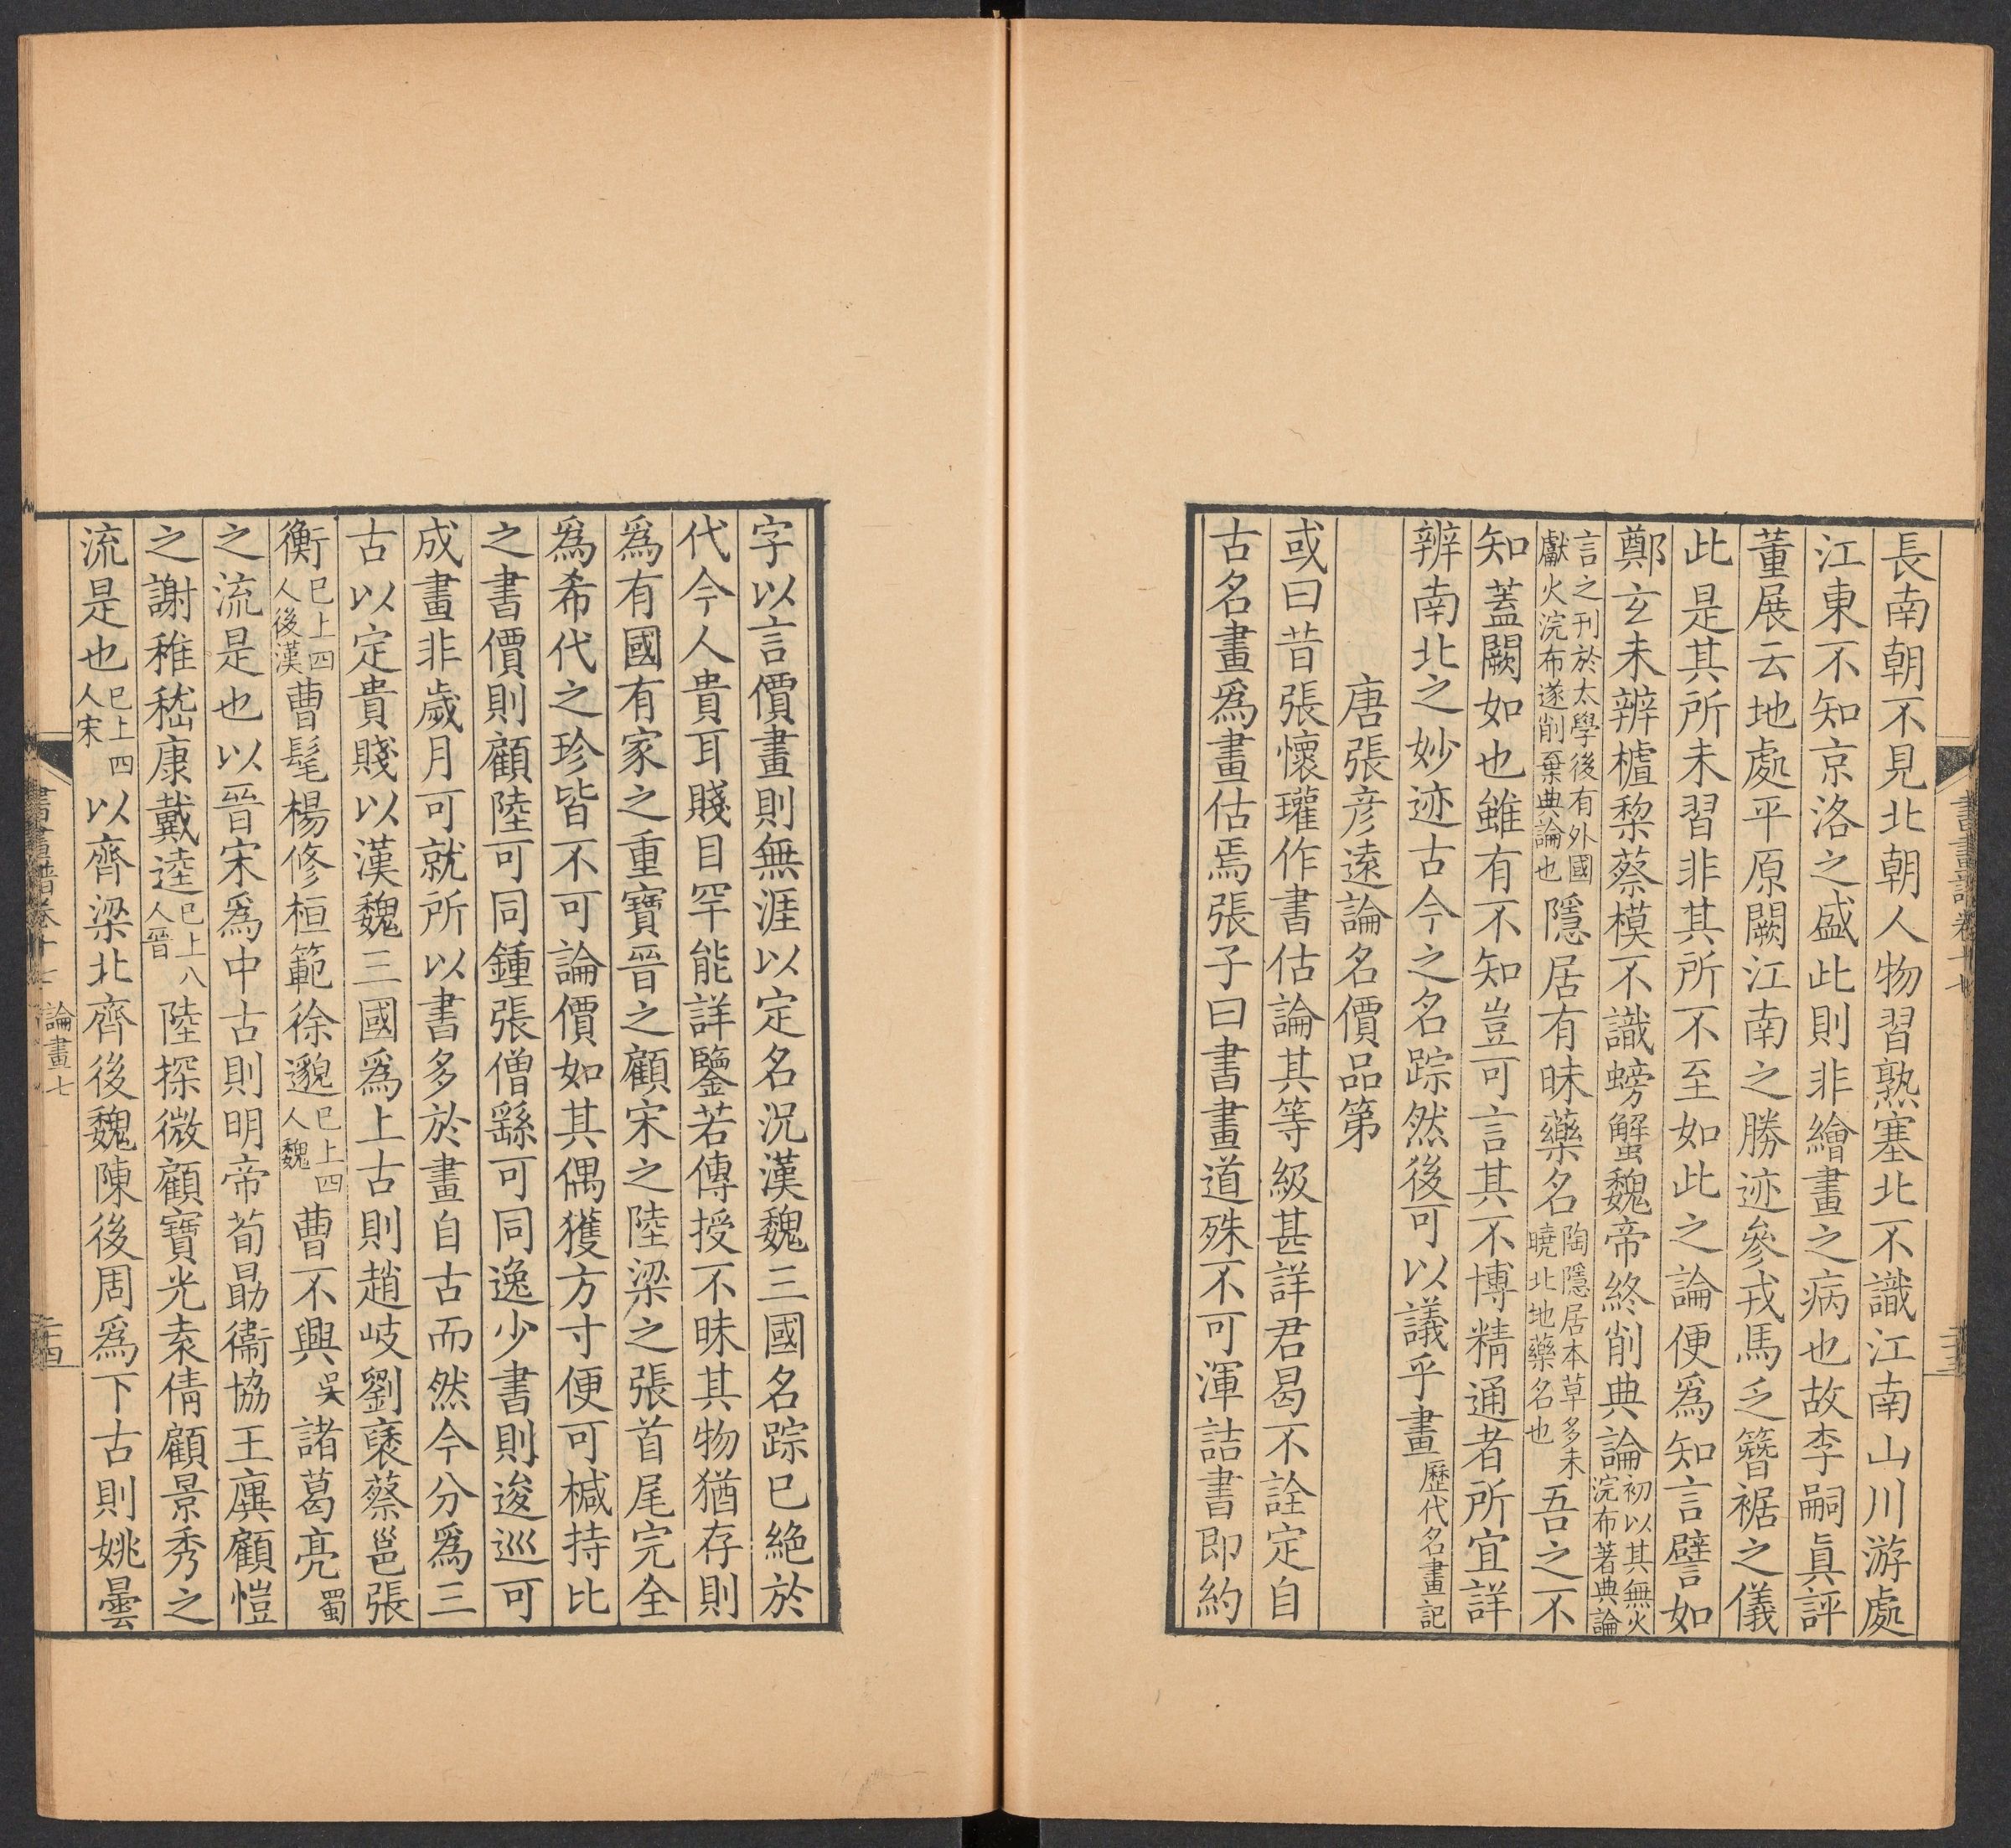 書畫譜卷十七
二十三
長南朝不見北朝人物習熟塞北不識江南山川游處
江東不知京洛之盛此則非繪畫之病也故李嗣眞評
董展云地處平原闕江南之勝迹參戎馬乏簪裾之儀
此是其所未習非其所不至如此之論便爲知言譬如
鄭玄未辨樝棃蔡模不識螃蟹魏帝終削典論初以其無火浣布著典論
言之刊於太學後有外國獻火浣布遂削棄典論也隱居有昧藥名陶隱居本草多未曉北地藥名也吾之不
知蓋闕如也雖有不知豈可言其不博精通者所宜詳
辨南北之妙迹古今之名踪然後可以議乎畫歷代名畫記
唐張彥遠論名價品第
或曰昔張懷瓘作書估論其等級甚詳君曷不詮定自
古名畫爲畫估焉張子曰書畫道殊不可渾詰書即約
字以言價畫則無涯以定名況漢魏三國名踪已絶於
代今人貴耳賤目罕能詳鑒若傳授不昧其物猶存則
爲有國有家之重寶晉之顧宋之陸梁之張首尾完全
爲希代之珍皆不可論價如其偶獲方寸便可槭持比
之書價則顧陸可同鍾張僧繇可同逸少書則逡巡可
成畫非歲月可就所以書多於畫自古而然今分爲三
古以定貴賤以漢魏三國爲上古則趙岐劉褒蔡邕張
衡已上四人後漢曹髦楊修桓範徐邈已上四人魏曹不興吳諸葛亮蜀
之流是也以晉宋爲中古則明帝荀勗衞協王廙顧愷
之謝稚嵇康戴逵已上八人晉陸探微顧寶光袁倩顧景秀之
流是也已上四人宋以齊梁北齊後魏陳後周爲下古則姚曇
書畫譜卷十七
論畫七
二十四